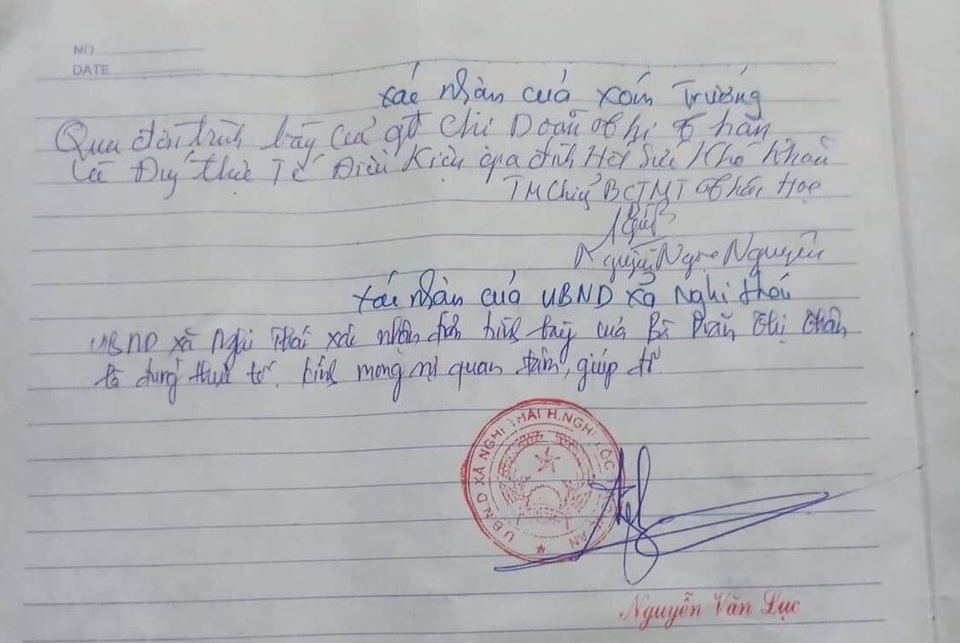 NO
DATE
Xác nhận của xóm Trường
Qua đơn trình bày của gđ Chị Doãn Thị Thân
Là Đúng thực Tế Điều Kiện gia đình Hết Sức Khó Khăn
TM Chi ủy BCTMT
Nguyễn Ngọc Nguyên
Xác nhận của UBND xã Nghi Thái
UBND xã Nghi Thái xác nhận đơn trình bày của Bà Doãn Thị Thân
là đúng thực tế. Kính mong sự quan tâm, giúp đỡ
UBND XÃ NGHI THÁI H.NGHI LỘC AN
Nguyễn Văn Lục